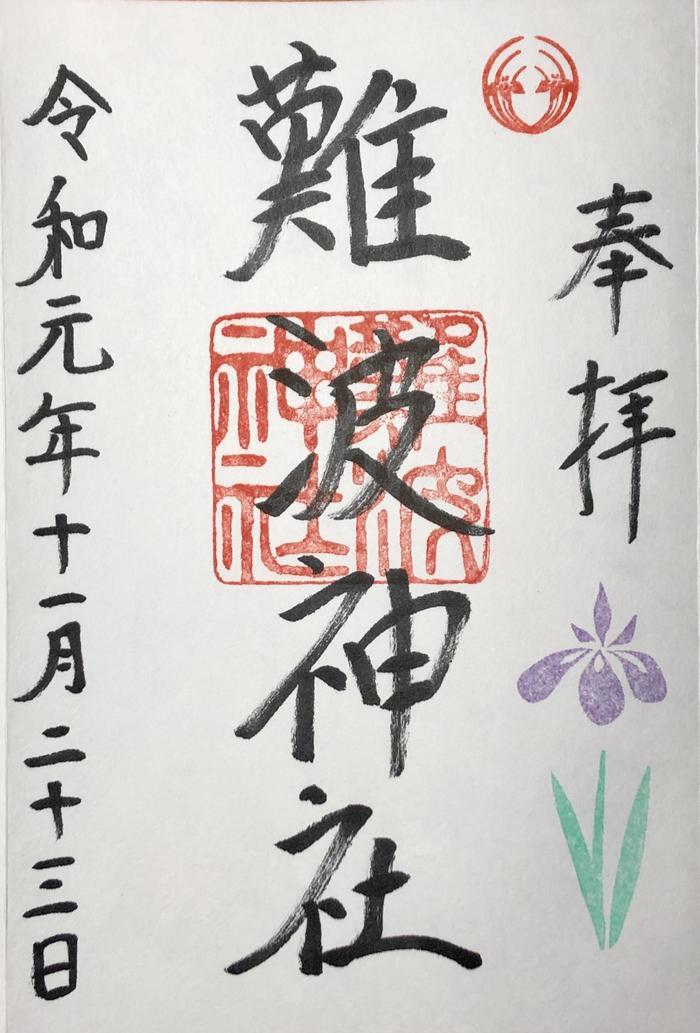 奉拝
難波神社
難波神社
令和元年十一月二十三日